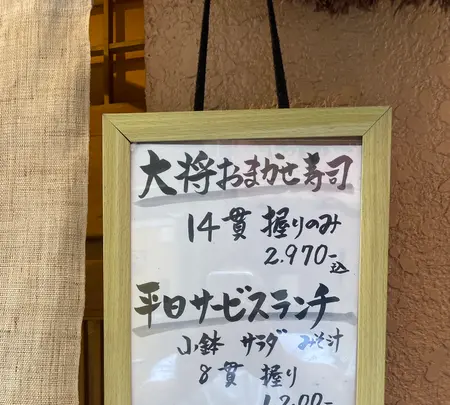 大将おまかせ寿司
14貫 握りのみ
2.970-込
平日サービスランチ
小鉢 サラダ みそ汁
8貫 握り